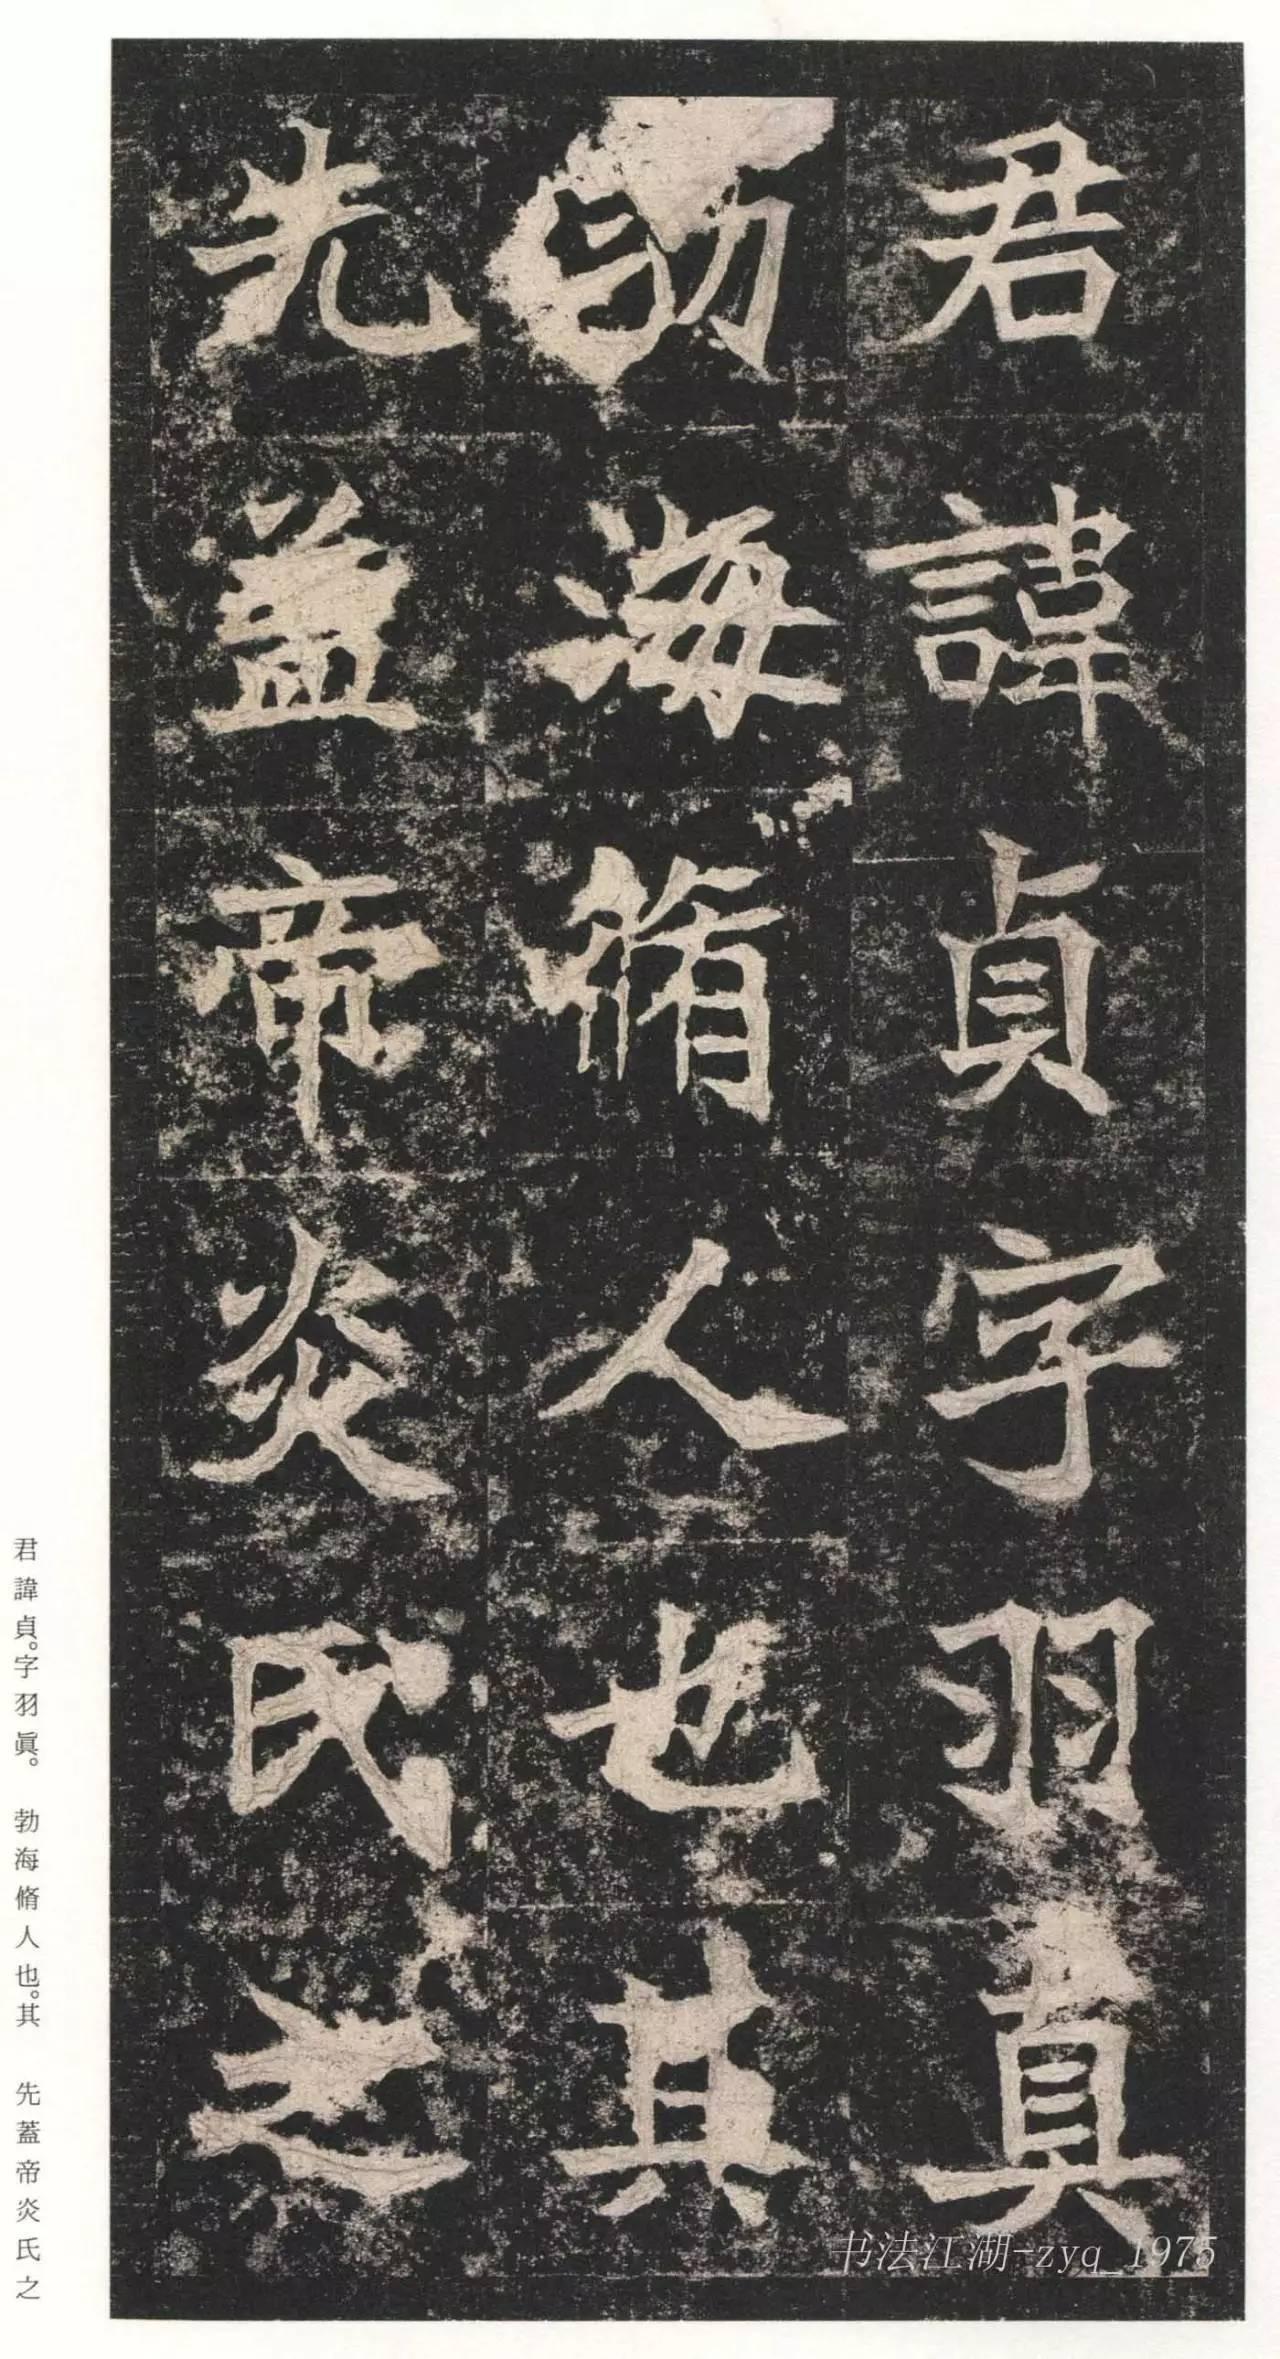 君諱貞字羽真
勃海脩人也其
先蓋帝炎氏之
君諱貞。字羽眞。 勃海脩人也。其 先蓋帝炎氏之
书法江湖-zyq_1975